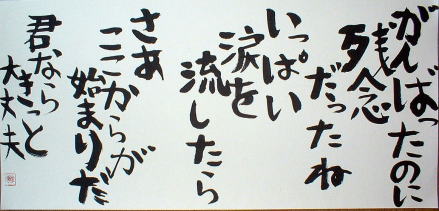 がんばったのに
残念
だったね
いっぱい
涙を
流したら
さあ
ここからが
始まりだ
君なら
きっと
大丈夫